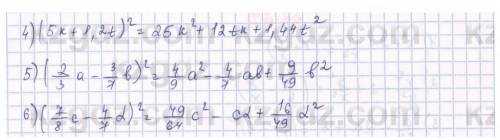 4) (5k + 1,2t)² = 25k² + 12tk + 1,44t²
5) (2/3 a - 3/7 b)² = 4/9 a² - 4/7 ab + 9/49 b²
6) (7/8 c - 4/7 d)² = 49/64 c² - cd + 16/49 d²